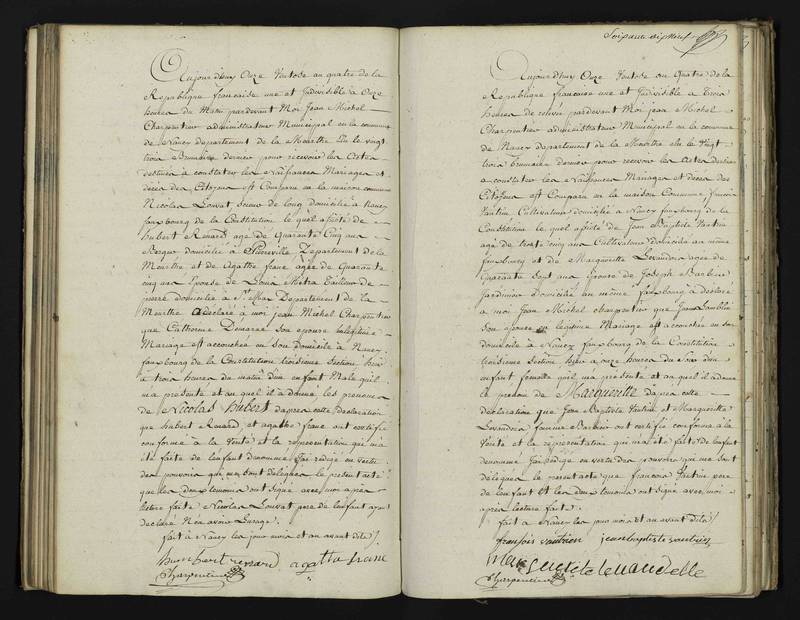 Aujourd'huy Onze Ventose an quatre de la
République francaise une et Indivisible à Onze
heures du Matin pardevant Moi Jean Michel
Charpentier administrateur Municipal en la commune
de Nancy département de la Meurthe élu le vingt
trois Brumaire dernier pour recevoir les Actes
destinés à constater les Naissances Mariages et
décès des Citoyens est Comparu en la maison commune
Nicolas Louvat Scieur de long domicilié à Nancy
faubourg de la Constitution le quel assisté de
hubert Renard agé de Quarante Cinq ans
domicilié à Pierreville Département de la
Meurthe et de Agathe franc agée de Quarante
cinq ans Epouse de Louis tailleur de
pierre domiciliée à St Max Département de la
Meurthe a declaré à moi jean Michel Charpentier
que Catherine son epouse en légitime
Mariage est accouchée en son domicile à Nancy
faubourg de la Constitution troisieme Section hier
à trois heures du matin d'un enfant Male qu'il
m'a présenté et au quel il a donné les prenoms
de Nicolas hubert d'après cette déclaration
que hubert Renard et agathe franc ont certifié
conforme à la Vérité et la représentation qui m'a
été faite de l'enfant dénommé J'ai redigé en vertu
des pouvoirs qui me sont délégués le présent acte
que les deux témoins ont signé avec moi après
lecture faite Nicolas Louvat pere de l'enfant ayant
declaré N'en avoir l'usage.
fait à Nancy les jour mois et an avant dits
humbert renard agatha franc
Charpentier
Soixante dix Neuf
Aujourd'huy Onze Ventose an Quatre de la
République francaise une et Indivisible à Trois
heures de relevée pardevant Moi jean Michel
Charpentier administrateur Municipal en la commune
de Nancy département de la Meurthe élu le Vingt
trois brumaire dernier pour recevoir les actes destinés
a constater les Naissances Mariages et décès des
Citoyens est Comparu en la maison Commune francois
Vautrin Cultivateur domicilié à Nancy faubourg de la
Constitution le quel assisté de Jean Baptiste Vautrin
agé de trente cinq ans Cultivateur domicilié au même
faubourg et de Marguerite agée de
Quarante Sept ans Epouse de Joseph Barbier
Jardinier Domicilié au même faubourg a déclaré
a moi Jean Michel charpentier que
Son epouse en légitime Mariage est accouchée en son
domicile à Nancy faubourg de la Constitution
troisieme Section hier à onze heures du Soir d'un
enfant femelle qu'il m'a présenté et au quel il a donné
le prénom de Marguerite d'après cette
déclaration que Jean Baptiste Vautrin et Marguerite
femme Barbier ont certifié conforme à la
Vérité et la représentation qui m'a été faite de l'enfant
denommé J'ai rédigé en vertu des pouvoirs qui me sont
délégués le présent acte que francois Vautrin pere
de l'enfant et les deux témoins ont signé avec moi
après lecture faite.
fait à Nancy les jour mois et an avant dits
françois vautrin jean baptiste vautrin
Charpentier